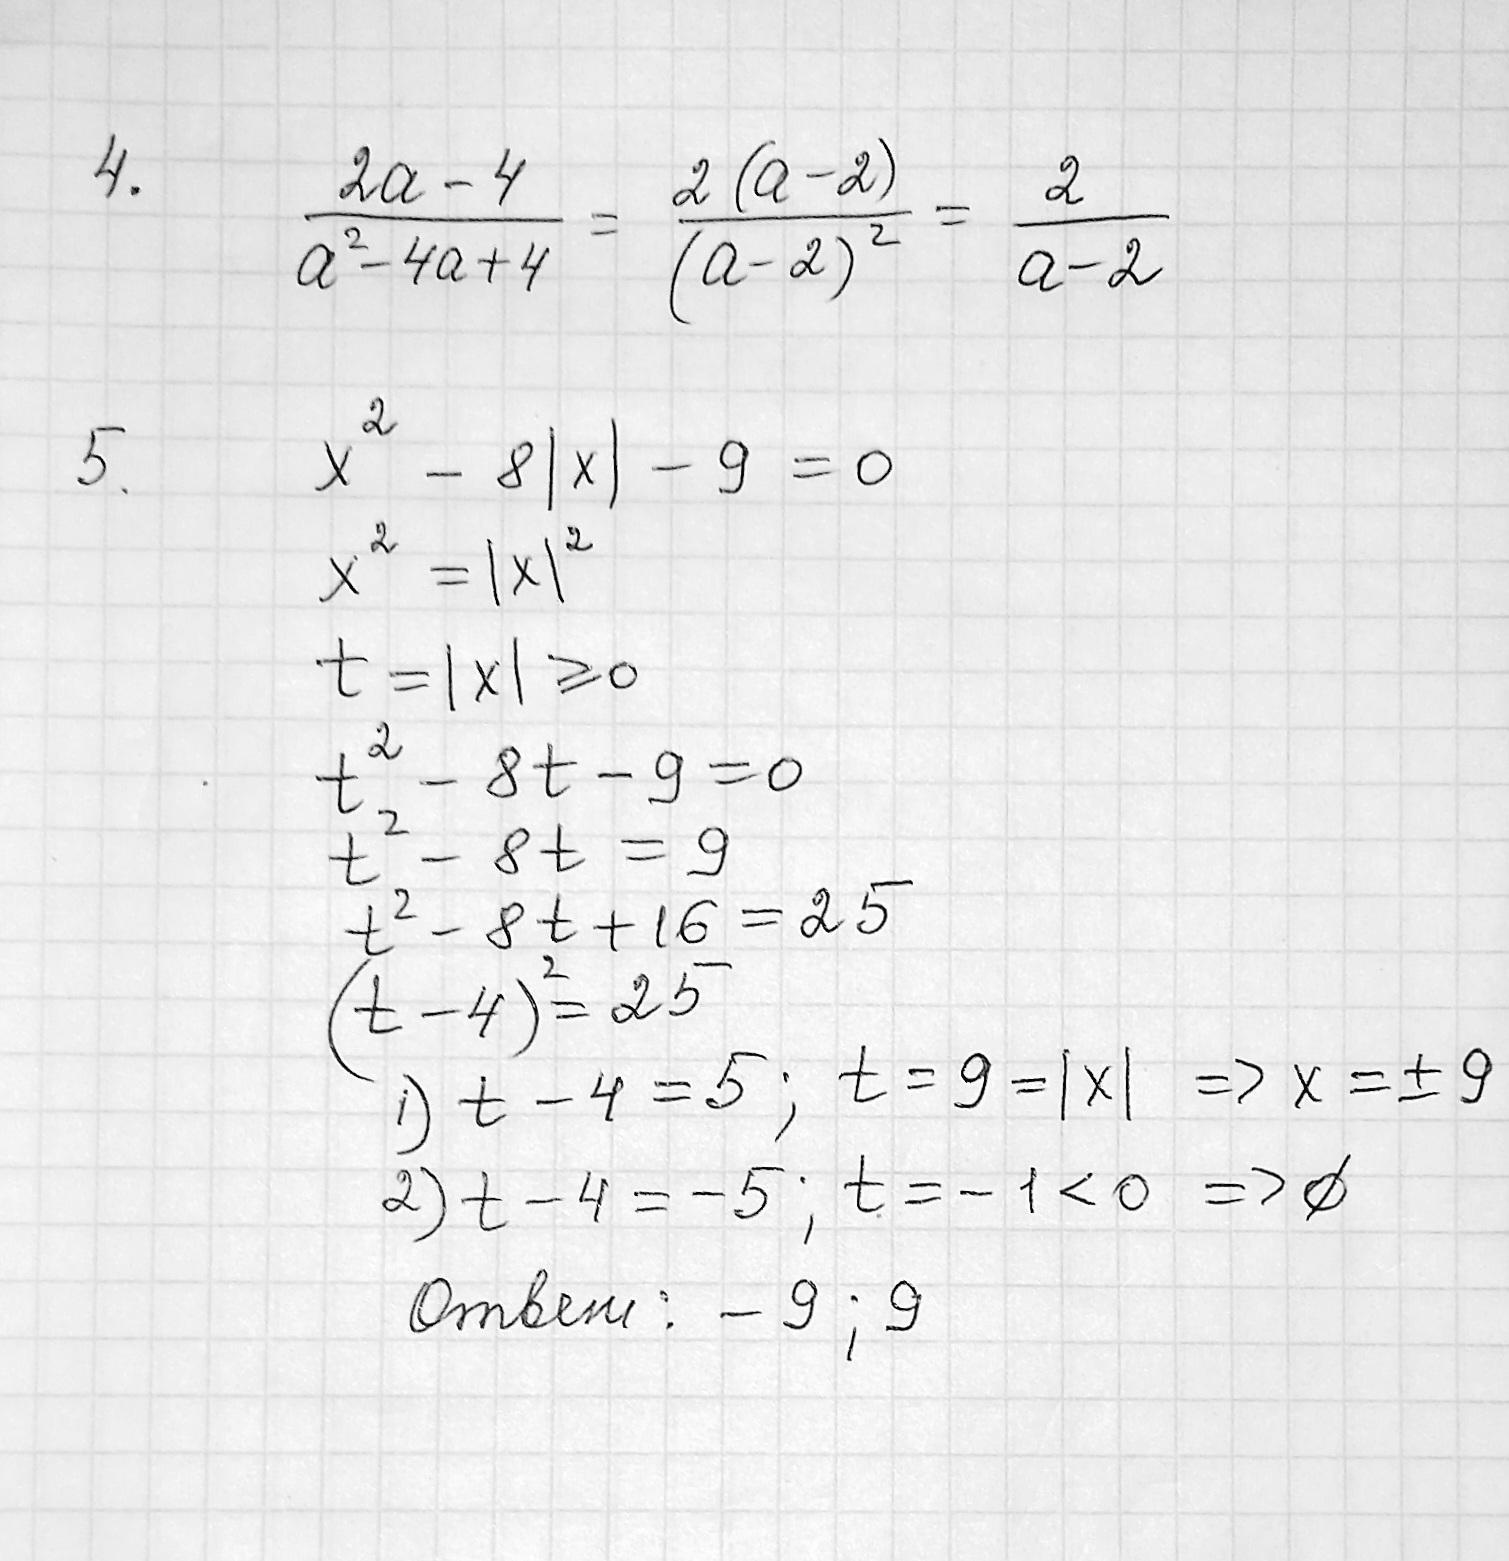 4. (2a - 4)/(a² - 4a + 4) = 2(a - 2)/(a - 2)² = 2/(a - 2)
5. x² - 8|x| - 9 = 0
x² = |x|²
t = |x| ⩾ 0
t² - 8t - 9 = 0
t² - 8t = 9
t² - 8t + 16 = 25
(t - 4)² = 25
1) t - 4 = 5; t = 9 = |x| => x = ± 9
2) t - 4 = -5; t = -1 < 0 => ∅
Ответ: -9; 9